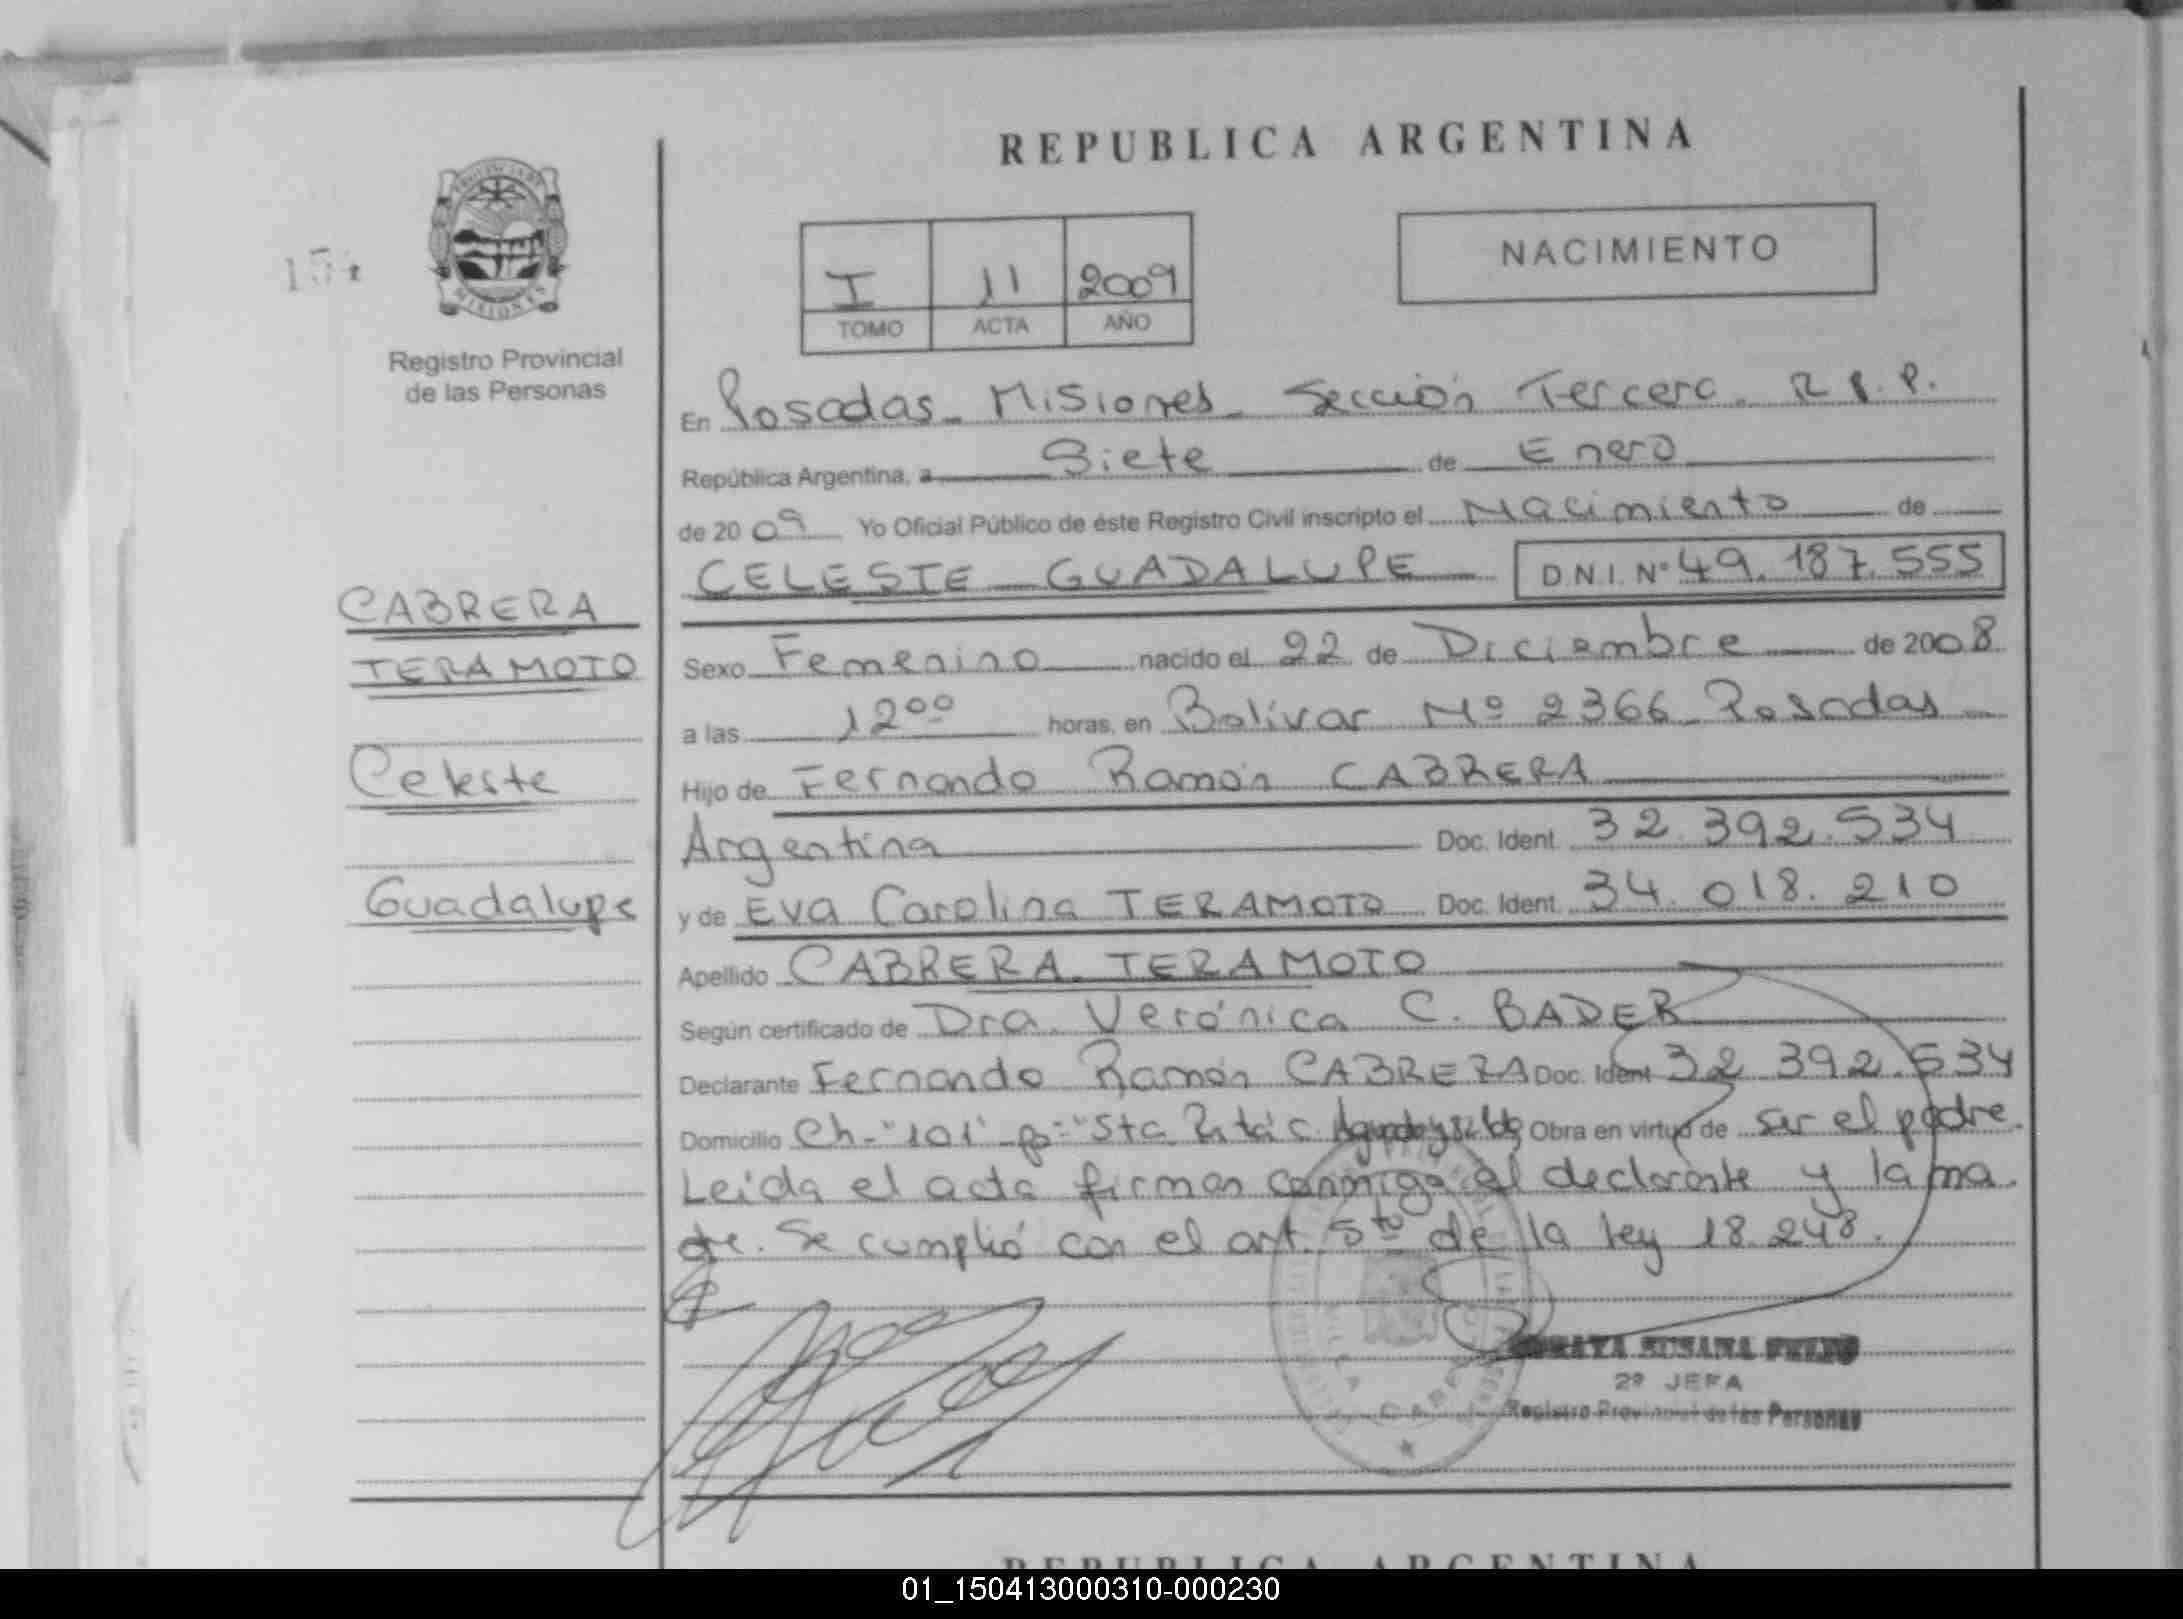 REPUBLICA ARGENTINA
PROVINCIA DE
MISIONES
Registro Provincial
de las Personas
I 11 2009
TOMO ACTA AÑO
NACIMIENTO
En Posadas - Misiones - Sección Tercera - R.P.P.
República Argentina, a Siete de Enero
de 2009 Yo Oficial Público de éste Registro Civil inscripto el Nacimiento de
CELESTE GUADALUPE D.N.I. Nº 49.187.555
CABRERA
TERAMOTO
Celeste
Guadalupe
Sexo Femenino nacido el 22 de Diciembre de 2008
a las 12ºº horas, en Bolívar Nº 2366 - Posadas -
Hijo de Fernando Ramón CABRERA
Argentina Doc. Ident. 32.392.534
y de Eva Carolina TERAMOTO Doc. Ident. 34.018.210
Apellido CABRERA TERAMOTO
Según certificado de Dra. Verónica C. BADER
Declarante Fernando Ramón CABRERA Doc. Ident. 32.392.534
Domicilio Ch- "101" Sta Rita Obra en virtud de ser el padre.
Leida el acta firman conmigo el declarante y la ma
dre. Se cumplió con el art. 5to de la ley 18.248.
SUSANA
2º JEFA
Registro Provincial de las Personas
REPUBLICA ARGENTINA
01_150413000310-000230